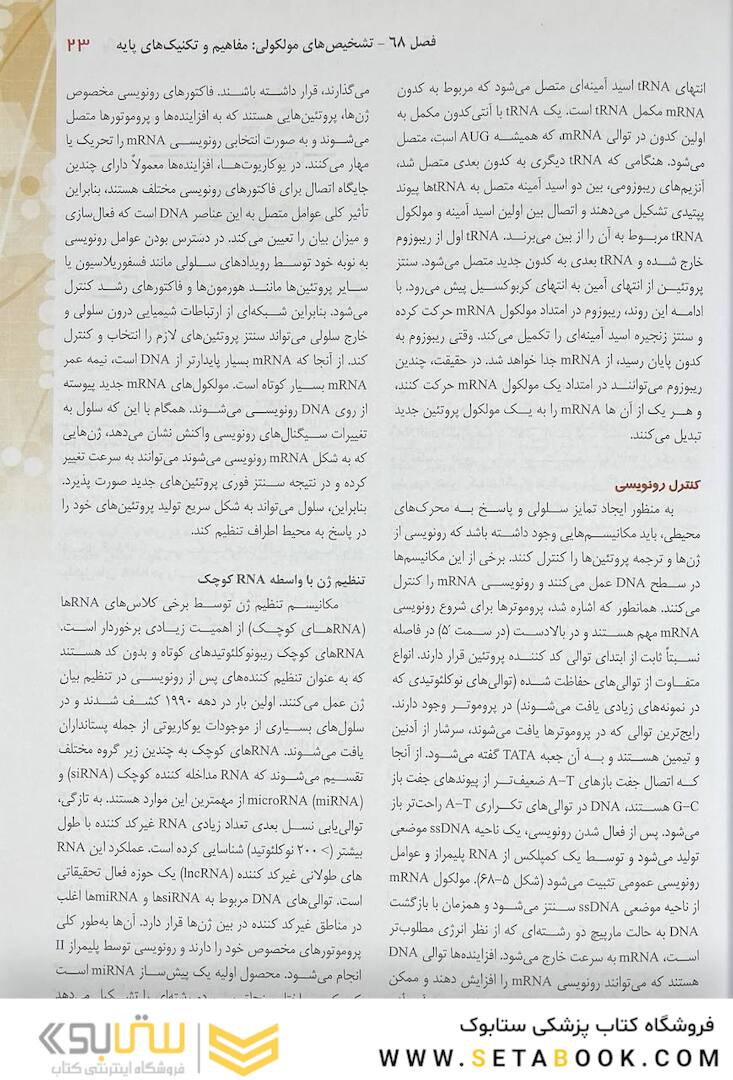 فصل ۶۸ - تشخیص‌های مولکولی: مفاهیم و تکنیک‌های پایه ۲۳
انتهای tRNA اسید آمینه‌ای متصل می‌شود که مربوط به کدون
mRNA مکمل tRNA است. یک tRNA با آنتی‌کدون مکمل به
اولین کدون در توالی mRNA، که همیشه AUG است، متصل
می‌شود. هنگامی که tRNA دیگری به کدون بعدی متصل شد،
آنزیم‌های ریبوزومی، بین دو اسید آمینه متصل به tRNAها پیوند
پپتیدی تشکیل می‌دهند و اتصال بین اولین اسید آمینه و مولکول
tRNA مربوط به آن را از بین می‌برند. tRNA اول از ریبوزوم
خارج شده و tRNA بعدی به کدون جدید متصل می‌شود. سنتز
پروتئین از انتهای آمین به انتهای کربوکسیل پیش می‌رود. با
ادامه این روند، ریبوزوم در امتداد مولکول mRNA حرکت کرده
و سنتز زنجیره اسید آمینه‌ای را تکمیل می‌کند. وقتی ریبوزوم به
کدون پایان رسید، از mRNA جدا خواهد شد. در حقیقت، چندین
ریبوزوم می‌توانند در امتداد یک مولکول mRNA حرکت کنند،
و هر یک از آن ها mRNA را به یک مولکول پروتئین جدید
تبدیل می‌کنند.
کنترل رونویسی
به منظور ایجاد تمایز سلولی و پاسخ به محرک‌های
محیطی، باید مکانیسم‌هایی وجود داشته باشد که رونویسی از
ژن‌ها و ترجمه پروتئین‌ها را کنترل کنند. برخی از این مکانیسم‌ها
در سطح DNA عمل می‌کنند و رونویسی mRNA را کنترل
می‌کنند. همانطور که اشاره شد، پروموترها برای شروع رونویسی
mRNA مهم هستند و در بالادست (در سمت ۵′) در فاصله
نسبتاً ثابت از ابتدای توالی کد کننده پروتئین قرار دارند. انواع
متفاوت از توالی‌های حفاظت شده (توالی‌های نوکلئوتیدی که
در نمونه‌های زیادی یافت می‌شوند) در پروموتر وجود دارند.
رایج‌ترین توالی که در پروموترها یافت می‌شوند، سرشار از آدنین
و تیمین هستند و به آن جعبه TATA گفته می‌شود. از آنجا
که اتصال جفت بازهای A-T ضعیف‌تر از پیوندهای جفت باز
G-C هستند، DNA در توالی‌های تکراری A-T راحت‌تر باز
می‌شود. پس از فعال شدن رونویسی، یک ناحیه ssDNA موضعی
تولید می‌شود و توسط یک کمپلکس از RNA پلیمراز و عوامل
رونویسی عمومی تثبیت می‌شود (شکل ۵-۶۸). مولکول mRNA
از ناحیه موضعی ssDNA سنتز می‌شود و همزمان با بازگشت
DNA به حالت مارپیچ دو رشته‌ای که از نظر انرژی مطلوب‌تر
است، mRNA به سرعت خارج می‌شود. افزاینده‌ها توالی DNA
هستند که می‌توانند رونویسی mRNA را افزایش دهند و ممکن
می‌گذارند، قرار داشته باشند. فاکتورهای رونویسی مخصوص
ژن‌ها، پروتئین‌هایی هستند که به افزاینده‌ها و پروموتورها متصل
می‌شوند و به صورت انتخابی رونویسی mRNA را تحریک یا
مهار می‌کنند. در یوکاریوت‌ها، افزاینده‌ها معمولاً دارای چندین
جایگاه اتصال برای فاکتورهای رونویسی مختلف هستند، بنابراین
تأثیر کلی عوامل متصل به این عناصر DNA است که فعال‌سازی
و میزان بیان را تعیین می‌کند. در دسترس بودن عوامل رونویسی
به نوبه خود توسط رویدادهای سلولی مانند فسفوریلاسیون یا
سایر پروتئین‌ها مانند هورمون‌ها و فاکتورهای رشد کنترل
می‌شود. بنابراین شبکه‌ای از ارتباطات شیمیایی درون سلولی و
خارج سلولی می‌تواند سنتز پروتئین‌های لازم را انتخاب و کنترل
کند. از آنجا که mRNA بسیار پایدارتر از DNA است، نیمه عمر
mRNA بسیار کوتاه است. مولکول‌های mRNA جدید پیوسته
از روی DNA رونویسی می‌شوند. همگام با این که سلول به
تغییرات سیگنال‌های رونویسی واکنش نشان می‌دهد، ژن‌هایی
که به شکل mRNA رونویسی می‌شوند می‌توانند به سرعت تغییر
کرده و در نتیجه سنتز فوری پروتئین‌های جدید صورت پذیرد.
بنابراین، سلول می‌تواند به شکل سریع تولید پروتئین‌های خود را
در پاسخ به محیط اطراف تنظیم کند.
تنظیم ژن با واسطه RNA کوچک
مکانیسم تنظیم ژن توسط برخی کلاس‌های RNAها
(RNAهای کوچک) از اهمیت زیادی برخوردار است.
RNAهای کوچک ریبونوکلئوتیدهای کوتاه و بدون کد هستند
که به عنوان تنظیم کننده‌های پس از رونویسی در تنظیم بیان
ژن عمل می‌کنند. اولین بار در دهه ۱۹۹۰ کشف شدند و در
سلول‌های بسیاری از موجودات یوکاریوتی از جمله پستانداران
یافت می‌شوند. RNAهای کوچک به چندین زیر گروه مختلف
تقسیم می‌شوند که RNA مداخله کننده کوچک (siRNA) و
microRNA (miRNA) از مهمترین این موارد هستند. به تازگی،
توالی‌یابی نسل بعدی تعداد زیادی RNA غیرکد کننده با طول
بیشتر (> ۲۰۰ نوکلئوتید) شناسایی کرده است. عملکرد این RNA
های طولانی غیرکد کننده (lncRNA) یک حوزه فعال تحقیقاتی
است. توالی‌های DNA مربوط به siRNAها و miRNAها اغلب
در مناطق غیرکد کننده در بین ژن‌ها قرار دارد. آن‌ها به‌طور کلی
پروموتورهای مخصوص خود را دارند و رونویسی توسط پلیمراز II
انجام می‌شود. محصول اولیه یک پیش‌ساز miRNA است
فروشگاه کتاب پزشکی ستابوک
WWW.SETABOOK.COM
ستابوک
فروشگاه اینترنتی کتاب